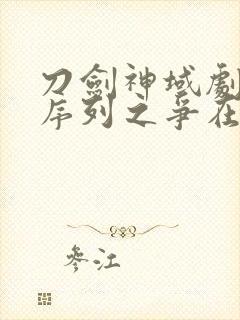 刀劍神域劇
序列之爭在
參江